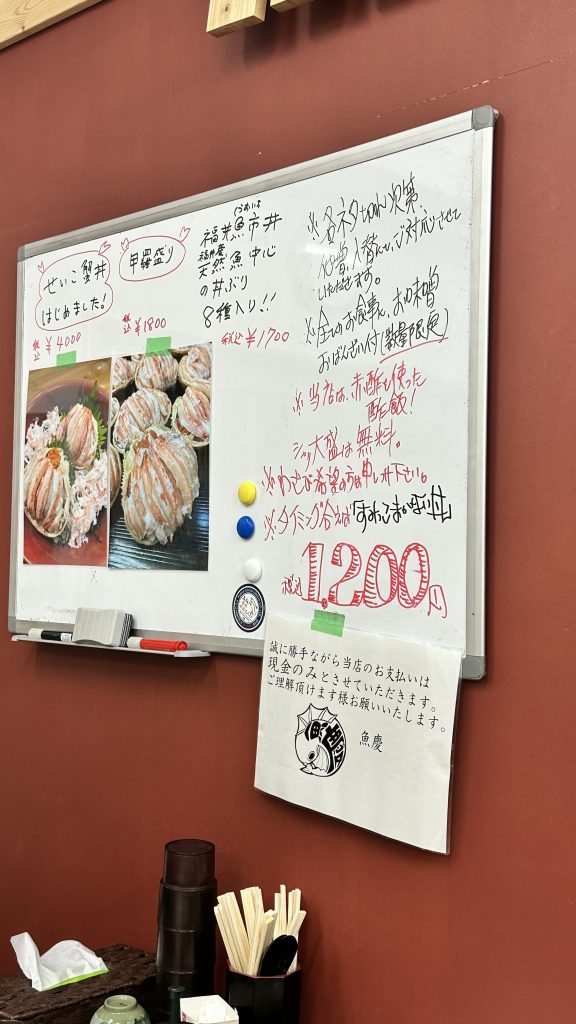 せいこ蟹丼
はじめました!
税込 ¥4000
甲羅盛り
税込 ¥1800
福井魚市丼
天然魚中心
の丼ぶり
8種入り!!
税込 ¥1700
※各ネタ
いただきます。
※全てのお食事に、お味噌
おばんざい付(数量限定)
※当店は、赤酢を使った
酢飯!
シャリ大盛は無料。
※わさび希望の方は申し付け下さい。
※タイミング合えば
税込 1,200円
誠に勝手ながら当店のお支払いは
現金のみとさせていただきます。
ご理解頂けます様お願いいたします。
魚慶